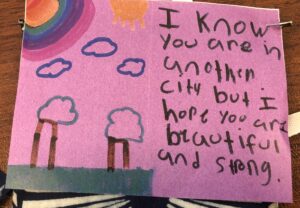 I know
you are in
another
city but i
hope you are
beautiful
and strong.